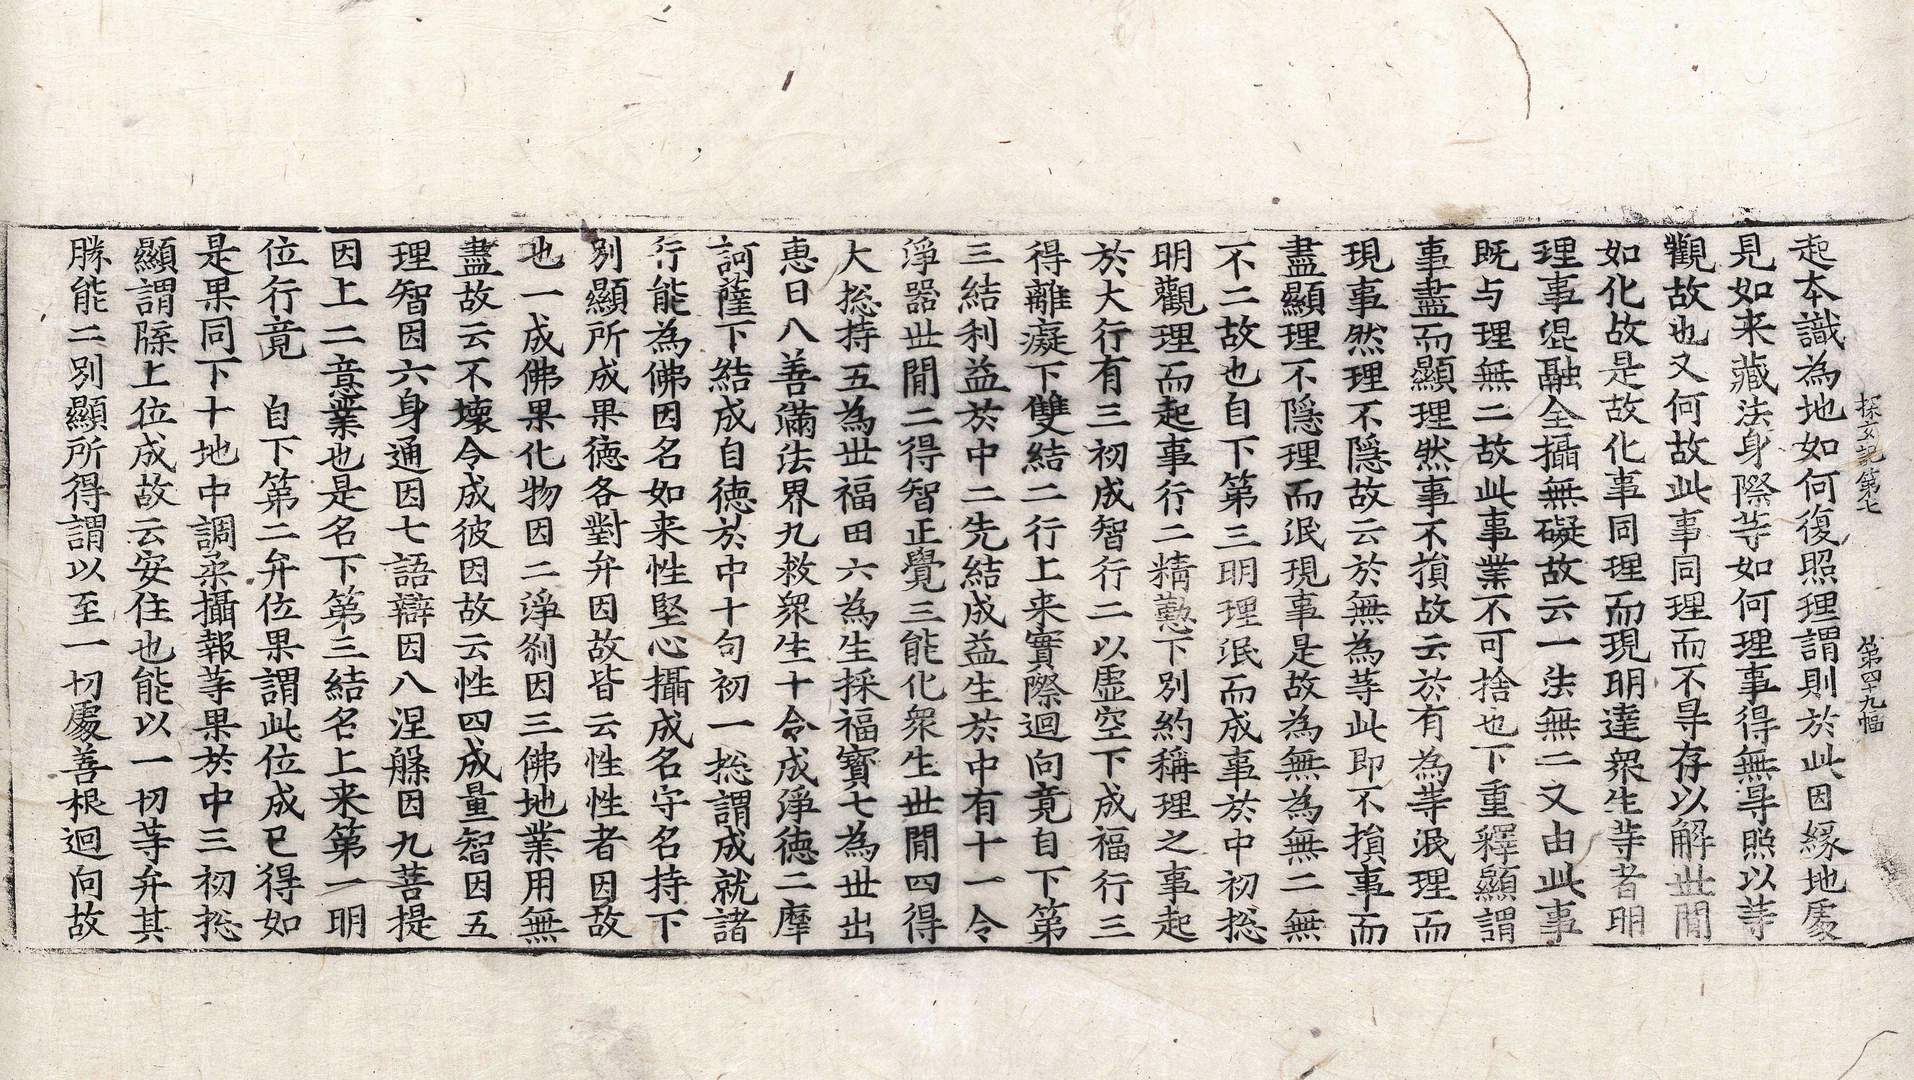 探玄記第七　第四十九幅
起本識為地如何復照理謂則於此因緣地處
見如来藏法身際等如何理事得無㝵照以等
觀故也又何故此事同理而不㝵存以解世間
如化故是故化事同理而現明達衆生等者明
理事混融全攝無礙故云一法無二又由此事
既与理無二故此事業不可捨也下重釋顯謂
事盡而顯理然事不損故云於有為等泯理而
現事然理不隱故云於無為等此即不損事而
盡顯理不隱理而泯現事是故為無為無二無
不二故也自下第三明理泯而成事於中初捴
明觀理而起事行二精懃下別約稱理之事起
於大行有三初成智行二以虛空下成福行三
得離癡下雙結二行上来實際迴向竟自下第
三結利益於中二先結成益生於中有十一令
淨器世間二得智正覺三能化衆生世間四得
大捴持五為世福田六為生採福寶七為世出
惠日八善滿法界九救衆生十令成淨德二摩
訶薩下結成自德於中十句初一捴謂成就諸
行能為佛因名如来性堅心攝成名守名持下
別顯所成果德各對弁因故皆云性性者因故
也一成佛果化物因二淨剎因三佛地業用無
盡故云不壞令成彼因故云性四成量智因五
理智因六身通因七語辯因八涅槃因九菩提
因上二意業也是名下第三結名上来第一明
位行竟　自下第二弁位果謂此位成已得如
是果同下十地中調柔攝報等果於中三初捴
顯謂隊上位成故云安住也能以一切等弁其
勝能二別顯所得謂以至一切處善根迴向故